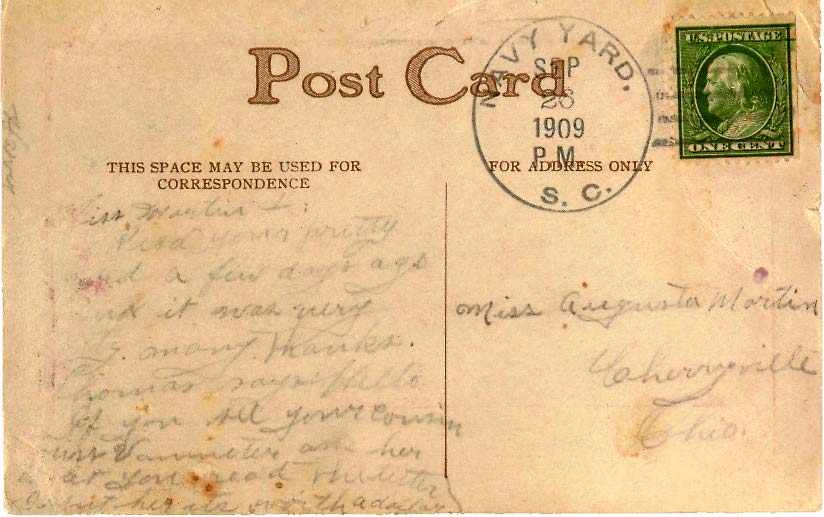 Post Card
NAVY YARD.
SEP
26
1909
P.M.
S. C.
U.S. POSTAGE
ONE CENT
THIS SPACE MAY BE USED FOR
CORRESPONDENCE
FOR ADDRESS ONLY
Miss Martin
your pretty
a few days ago
it was very
many thanks.
Thomas says Hello
If you see your cousin
Miss Vanmeter ask her
you read the letter
her its worth a dollar
Miss Augusta Martin
Cherryville
Ohio.